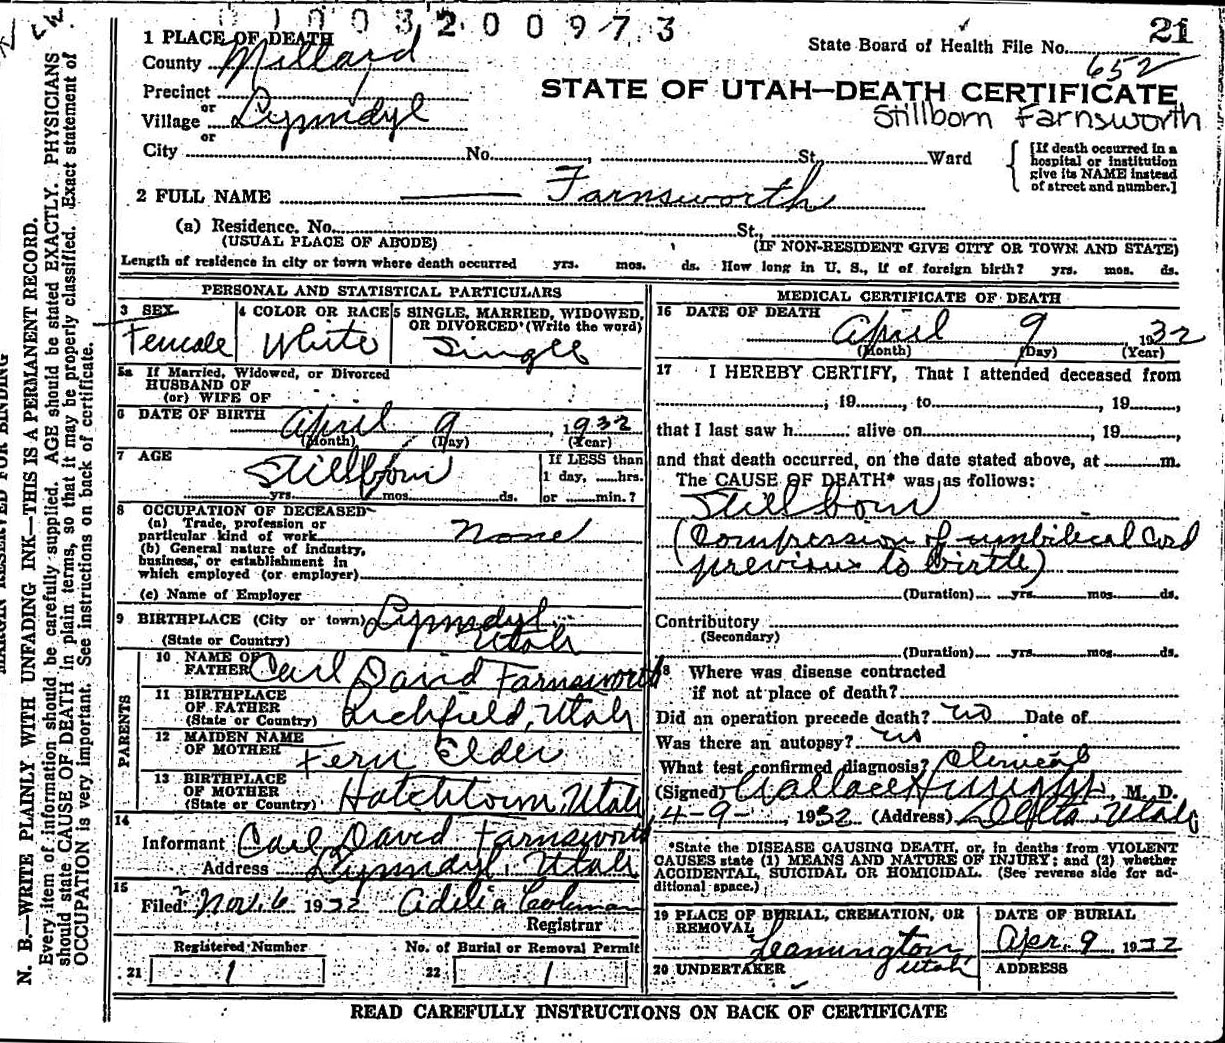 0 1 0 0 3 2 0 0 9 7 3
21
State Board of Health File No.
652
1 PLACE OF DEATH
County Millard
Precinct
or
Village Lynndyl
or
City No. , St. Ward
STATE OF UTAH—DEATH CERTIFICATE
Stillborn Farnsworth
[If death occurred in a
hospital or institution
give its NAME instead
of street and number.]
2 FULL NAME Farnsworth
(a) Residence. No. St.,
(USUAL PLACE OF ABODE) (IF NON-RESIDENT GIVE CITY OR TOWN AND STATE)
Length of residence in city or town where death occurred yrs. mos. ds. How long in U. S., if of foreign birth? yrs. mos. ds.
PERSONAL AND STATISTICAL PARTICULARS
3 SEX
Female
4 COLOR OR RACE
White
5 SINGLE, MARRIED, WIDOWED,
OR DIVORCED (Write the word)
Single
5a If Married, Widowed, or Divorced
HUSBAND OF
(or) WIFE OF
6 DATE OF BIRTH April 9, 1932
(Month) (Day) (Year)
7 AGE
Stillborn
yrs. mos. ds.
If LESS than
1 day, hrs.
or min.?
8 OCCUPATION OF DECEASED
(a) Trade, profession or
particular kind of work None
(b) General nature of industry,
business, or establishment in
which employed (or employer)
(c) Name of Employer
9 BIRTHPLACE (City or town) Lynndyl
(State or Country) Utah
PARENTS
10 NAME OF
FATHER Carl David Farnsworth
11 BIRTHPLACE
OF FATHER
(State or Country) Richfield, Utah
12 MAIDEN NAME
OF MOTHER Fern Elder
13 BIRTHPLACE
OF MOTHER
(State or Country) Hatchtown, Utah
14
Informant Carl David Farnsworth
Address Lynndyl, Utah
15
Filed Nov. 6 1932 Adelia Coleman
Registrar
Registered Number No. of Burial or Removal Permit
21 1 22 1
MEDICAL CERTIFICATE OF DEATH
16 DATE OF DEATH
April 9, 1932
(Month) (Day) (Year)
17 I HEREBY CERTIFY, That I attended deceased from
, 19 , to , 19 ,
that I last saw h alive on , 19 ,
and that death occurred, on the date stated above, at m.
The CAUSE OF DEATH* was as follows:
Stillborn
(Compression of umbilical Cord
previous to birth)
(Duration) yrs. mos. ds.
Contributory
(Secondary)
(Duration) yrs. mos. ds.
18 Where was disease contracted
if not at place of death?
Did an operation precede death? no Date of
Was there an autopsy? no
What test confirmed diagnosis? Clinical
(Signed) Wallace , M. D.
4-9-, 1932 (Address) Delta, Utah
*State the DISEASE CAUSING DEATH, or, in deaths from VIOLENT
CAUSES state (1) MEANS AND NATURE OF INJURY; and (2) whether
ACCIDENTAL, SUICIDAL OR HOMICIDAL. (See reverse side for ad-
ditional space.)
19 PLACE OF BURIAL, CREMATION, OR
REMOVAL
Leamington,
Utah
DATE OF BURIAL
Apr. 9 1932
20 UNDERTAKER
ADDRESS
READ CAREFULLY INSTRUCTIONS ON BACK OF CERTIFICATE
MARGIN RESERVED FOR BINDING
N. B.—WRITE PLAINLY WITH UNFADING INK—THIS IS A PERMANENT RECORD.
Every item of information should be carefully supplied. AGE should be stated EXACTLY. PHYSICIANS
should state CAUSE OF DEATH in plain terms, so that it may be properly classified. Exact statement of
OCCUPATION is very important. See instructions on back of certificate.